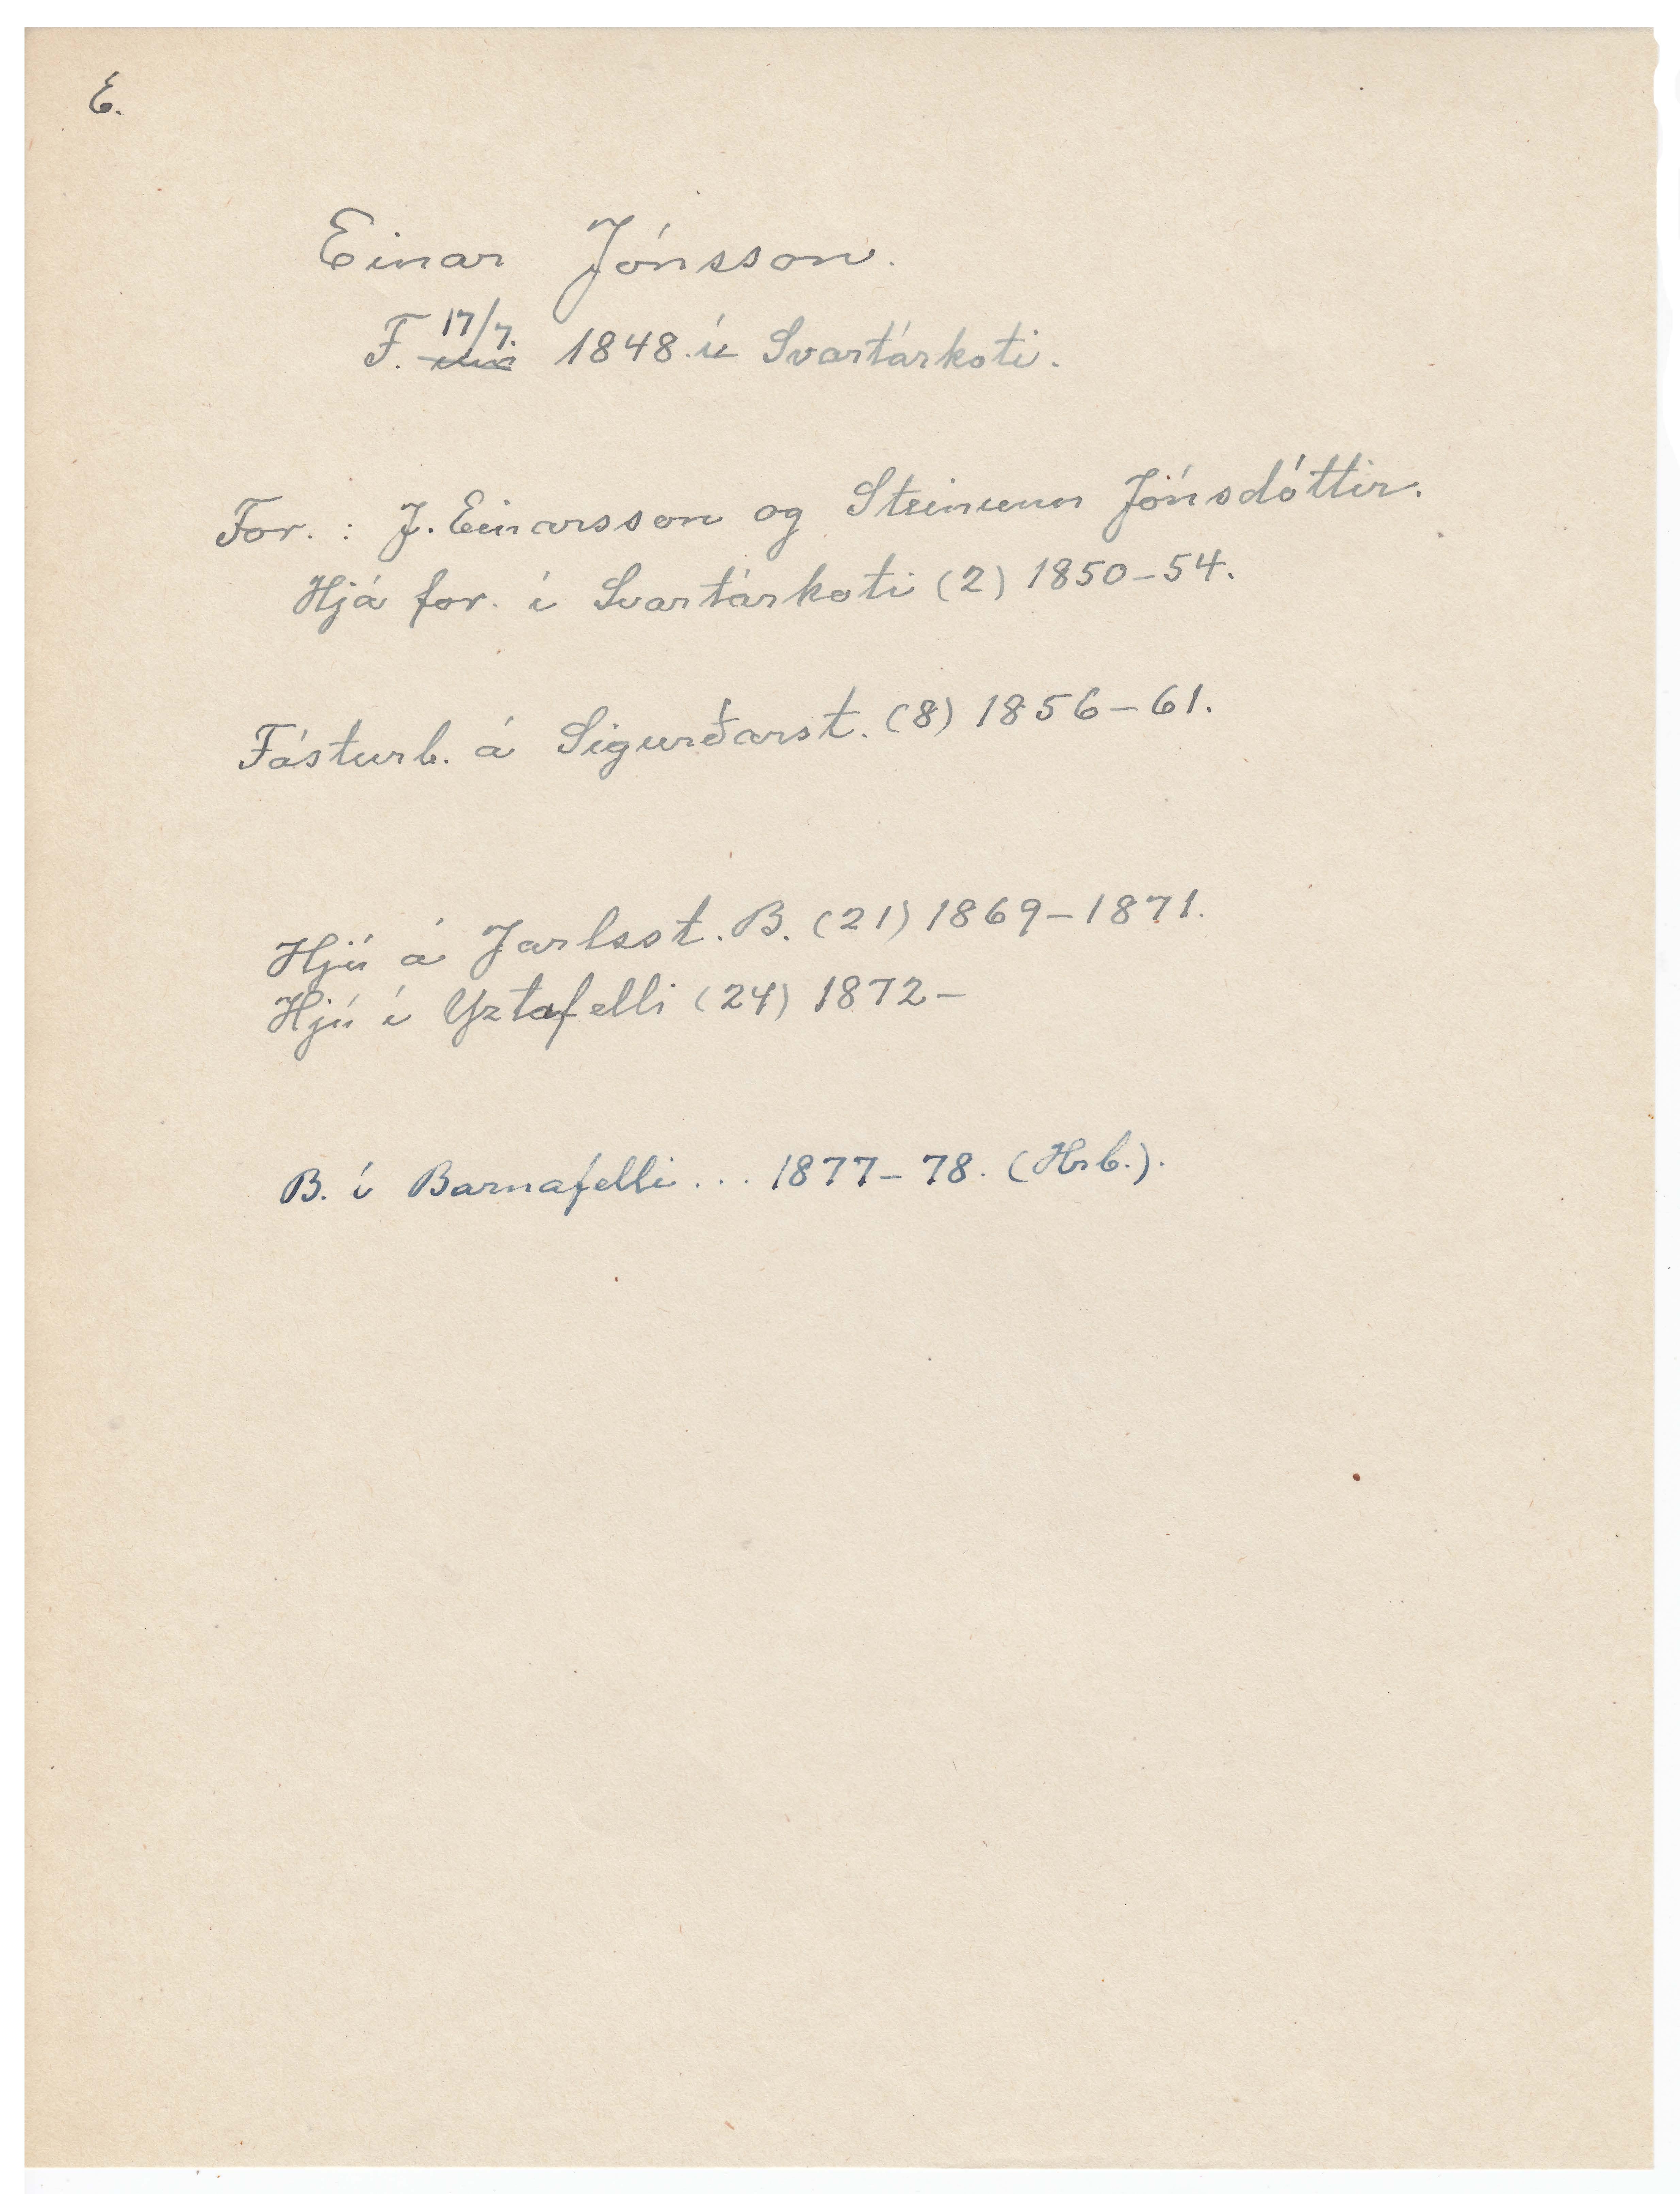 E.
Einar Jónsson.
F. 17/7. 1848 í Svartárkoti.
For. : J. Einarsson og Steinunn Jónsdóttir.
Hjá for. í Svartárkoti (2) 1850-54.
Fósturb. á Sigurðarst. (8) 1856-61.
Hjú á Jarlsst. B. (21) 1869-1871.
Hjú í Yztafelli (24) 1872-
B. í Barnafelli... 1877-78. (Hrb.).